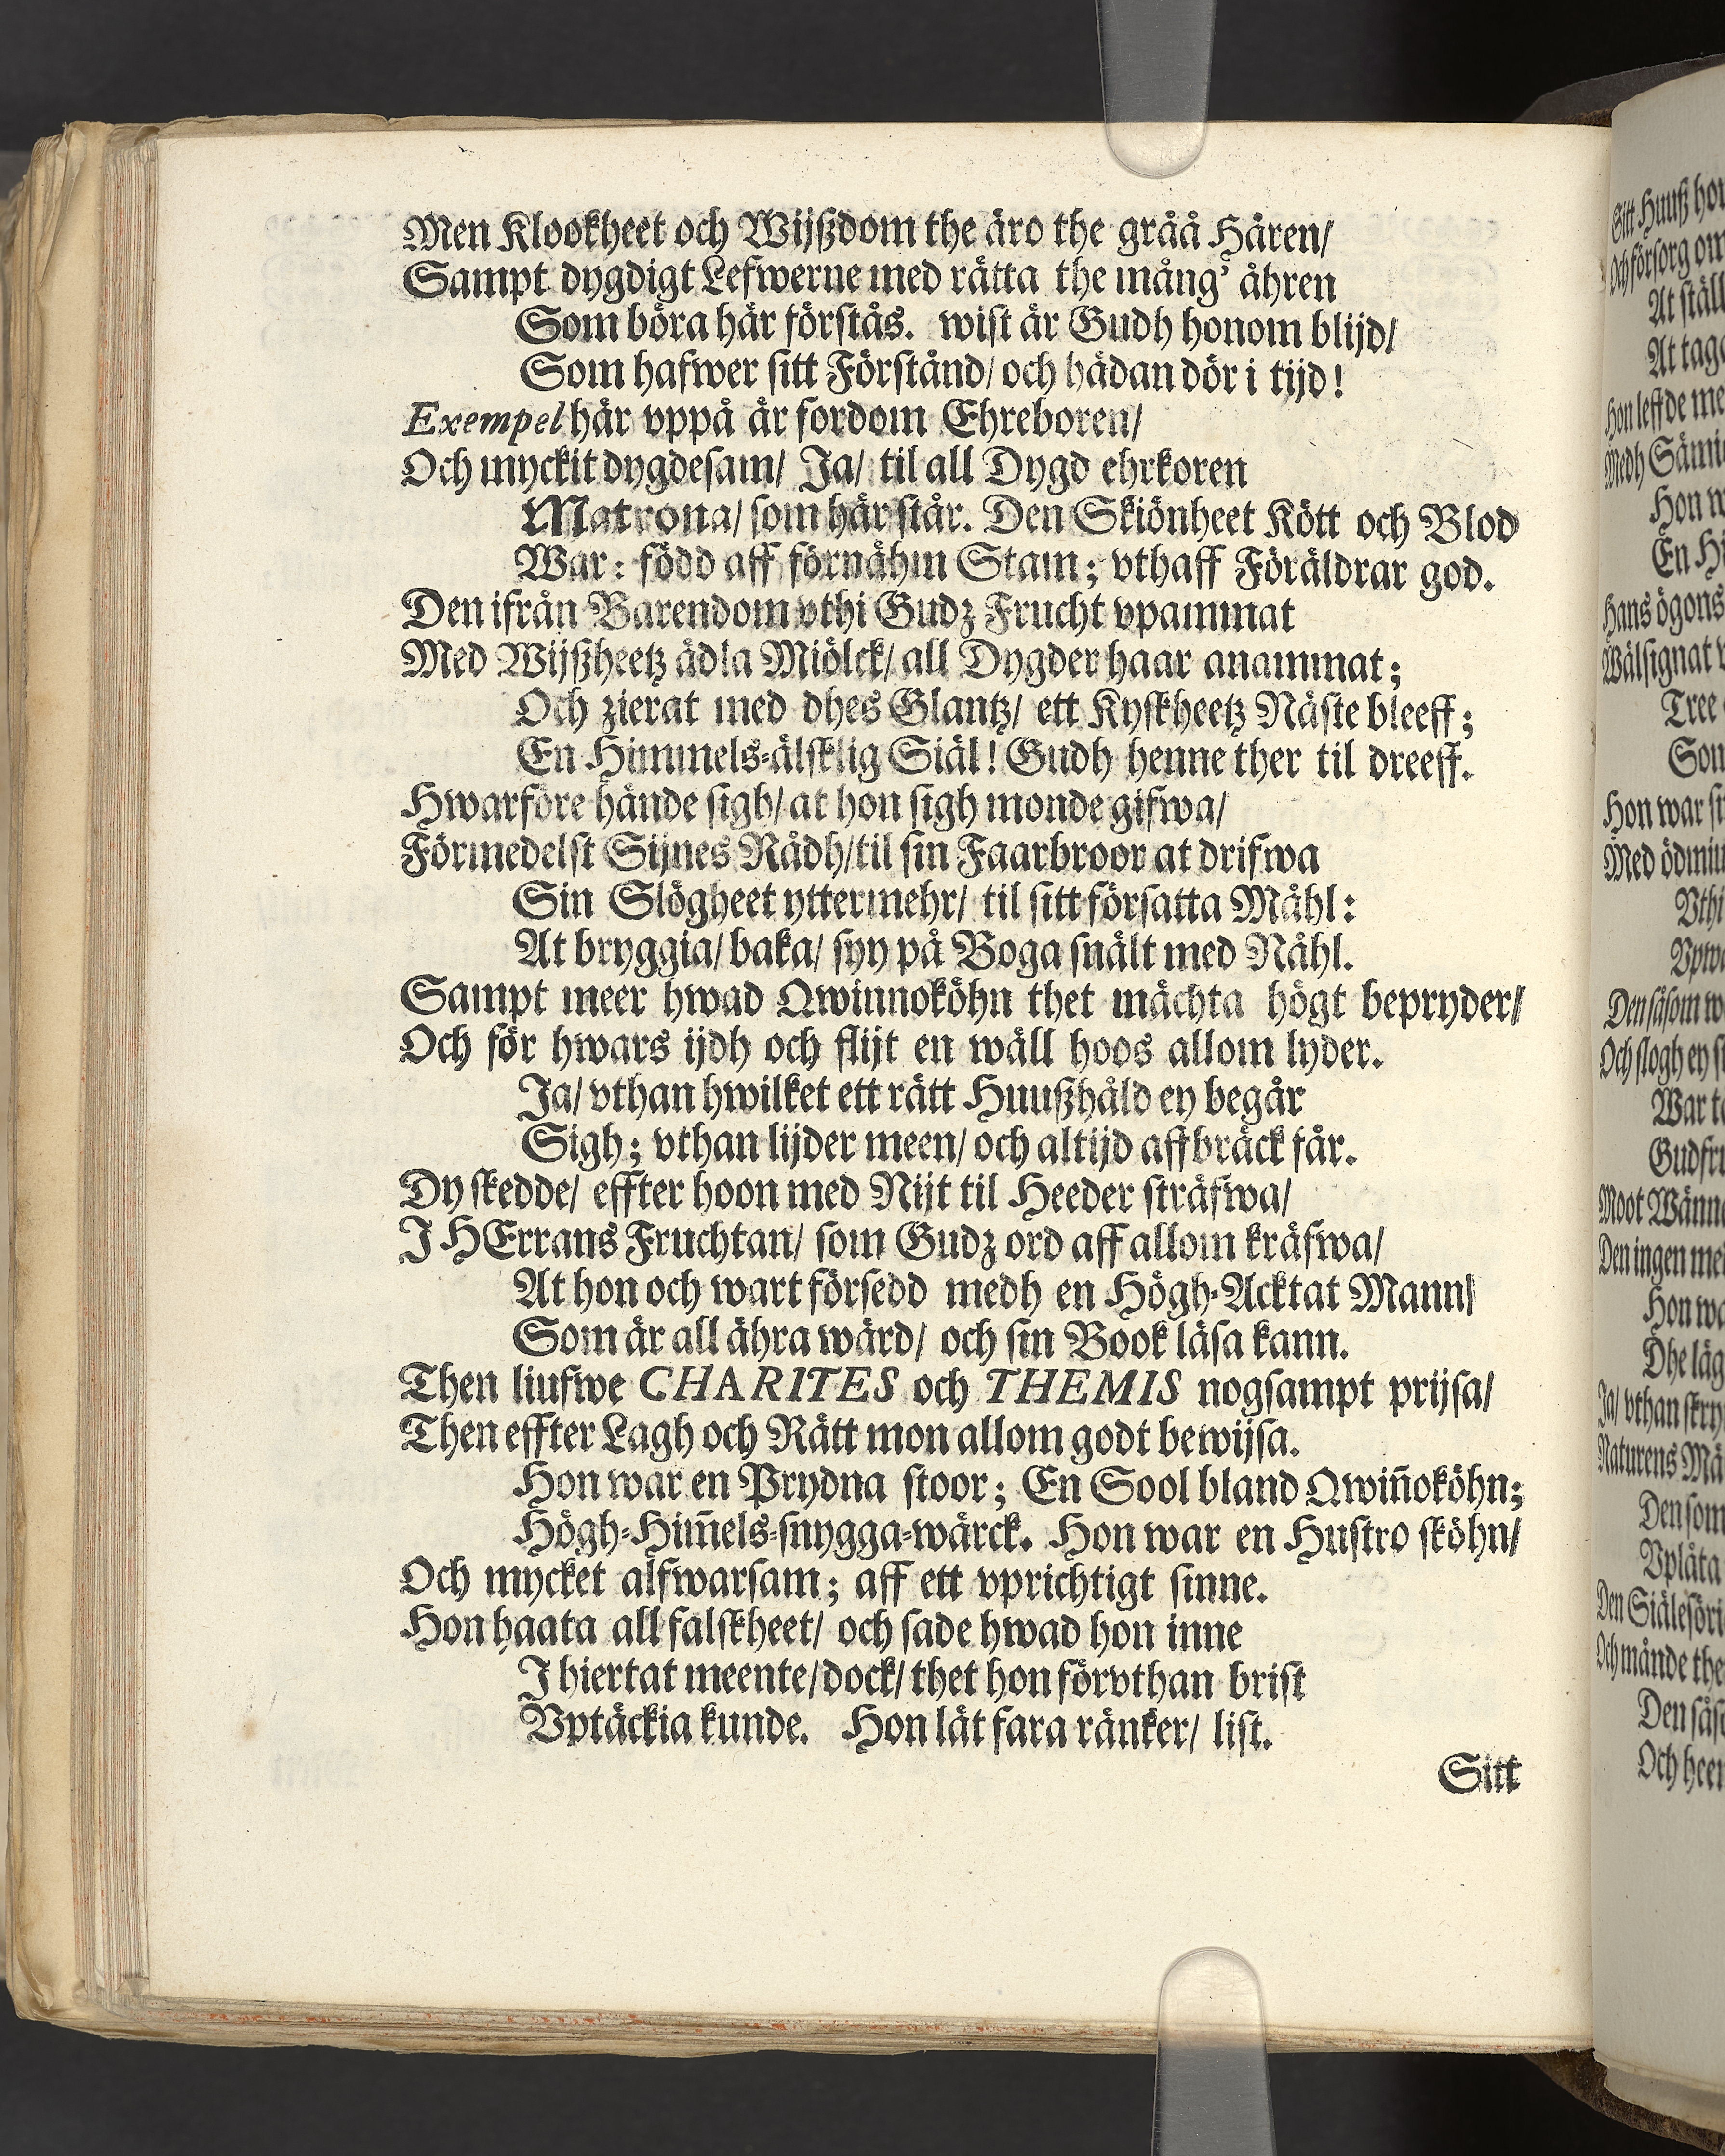 Men Klookheet och Wijßdom the äro the gråå Håren/
Sampt dygdigt Lefwerne med rätta the mång' åhren
Som böra här förſtås. wiſt är Gudh honom blijd/
Som hafwer ſitt Förſtånd/ och hädan dör i tijd!
Exempel här vppå är fordom Ehreboren/
Och myckit dygdeſam/ Ja/ til all Dygd ehrkoren
Matrona/ ſom här ſtår. Den Skiönheet Kött och Blod
War: född aff förnähm Stam; vthaff Föräldrar god.
Den ifrån Barendom vthi Gudz Frucht vpammat
Med Wijßheetz ädla Miölck/ all Dygder haar anammat;
Och zierat med dhes Glantz/ ett Kyſkheetz Näſte bleeff;
En Himmels-älſklig Siäl! Gudh henne ther til dreeff.
Hwarföre hände ſigh/ at hon ſigh monde gifwa/
Förmedelſt Sijnes Rådh/ til ſin Faarbroor at drifwa
Sin Slögheet yttermehr/ til ſitt förſatta Måhl:
At bryggia/ baka/ ſyy på Boga ſnält med Nåhl.
Sampt meer hwad Qwinnoköhn thet mächta högt bepryder/
Och för hwars ijdh och flijt en wäll hoos allom lyder.
Ja/ vthan hwilket ett rätt Huußhåld ey begår
Sigh; vthan lijder meen/ och altijd affbräck får.
Dy ſkedde/ effter hoon med Nijt til Heeder ſträfwa/
J HErrans Fruchtan/ ſom Gudz ord aff allom kräfwa/
At hon och wart förſedd medh en Högh-Acktat Mann/
Som är all ähra wärd/ och ſin Book läſa kann.
Then liufwe CHARITES och THEMIS nogſampt prijſa/
Then effter Lagh och Rätt mon allom godt bewijſa.
Hon war en Prydna ſtoor; En Sool bland Qwiñoköhn;
Högh-Him̃els-ſnygga-wärck. Hon war en Huſtro ſköhn/
Och mycket alfwarſam; aff ett vprichtigt ſinne.
Hon haata all falſkheet/ och ſade hwad hon inne
J hiertat meente/ dock/ thet hon förvthan briſt
Vptäckia kunde. Hon lät fara ränker/ liſt.
Sitt